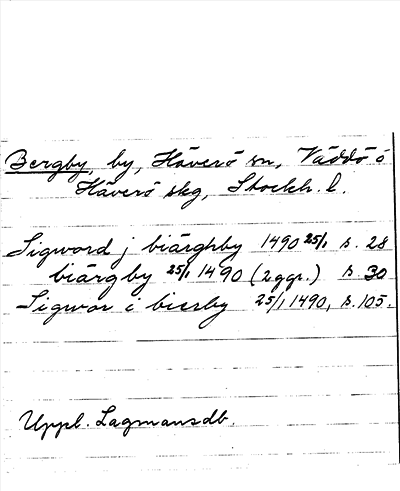 Bergby, by, Häverö sn, Väddö o
Häverö skg, Stockh. l.
Sigword j biärghby 1490 25/1 s. 28
biärgby 25/1 1490 (2ggr.) s. 30
Sigwor i bierby 25/1 1490, s. 105.
Uppl. Lagmansdb.